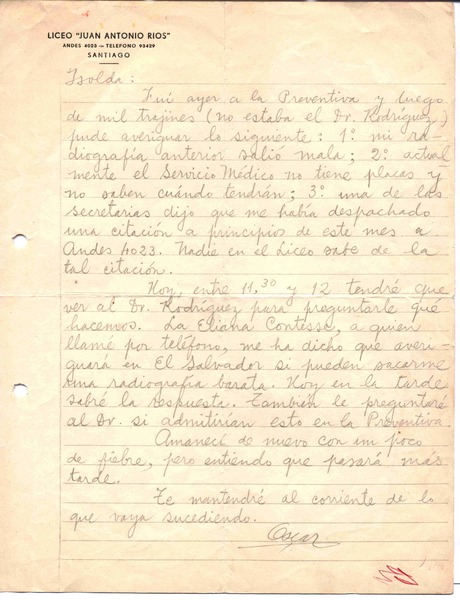 LICEO "JUAN ANTONIO RIOS"
ANDES 4023 — TELEFONO 93429
SANTIAGO
Isolda:
Fuí ayer a la Preventiva y luego
de mil trajines (no estaba el Dr. Rodríguez)
pude averiguar lo siguiente: 1º mi ra-
diografía anterior salió mala; 2º actual
mente el Servicio Médico no tiene placas y
no saben cuándo tendrán; 3º una de las
secretarias dijo que me había despachado
una citación a principios de este mes a
Andes 4023. Nadie en el Liceo sabe de la
tal citación.
Hoy, entre 11,30 y 12 tendré que
ver al Dr. Rodríguez para preguntarle qué
hacemos. La Eliana Contesse, a quien
llamé por teléfono, me ha dicho que averi-
guará en El Salvador si pueden sacarme
una radiografía barata. Hoy en la tarde
sabré la respuesta. También le preguntaré
al Dr. si admitirían esto en la Preventiva.
Amanecí de nuevo con un poco
de fiebre, pero entiendo que pasará más
tarde.
Te mantendré al corriente de lo
que vaya sucediendo.
Oscar